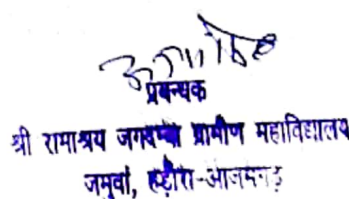 प्रबन्धक
श्री रामाश्रय जगदम्बा ग्रामीण महाविद्यालय
जमुवां, हड़ौरा-आजमगढ़